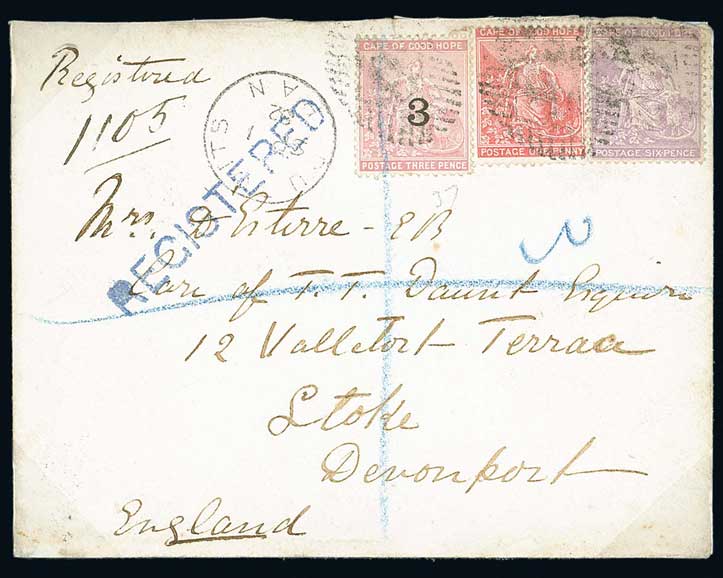 Registered
1105
CAPE OF GOOD HOPE
3
POSTAGE THREE PENCE
CAPE OF GOOD HOPE
POSTAGE ONE PENNY
CAPE OF GOOD HOPE
POSTAGE SIX PENCE
REGISTERED
37
Mrs. D'Esterre - EB
Care of T. T. Daunt Esquire
12 Valletort Terrace
Stoke
Devonport
England